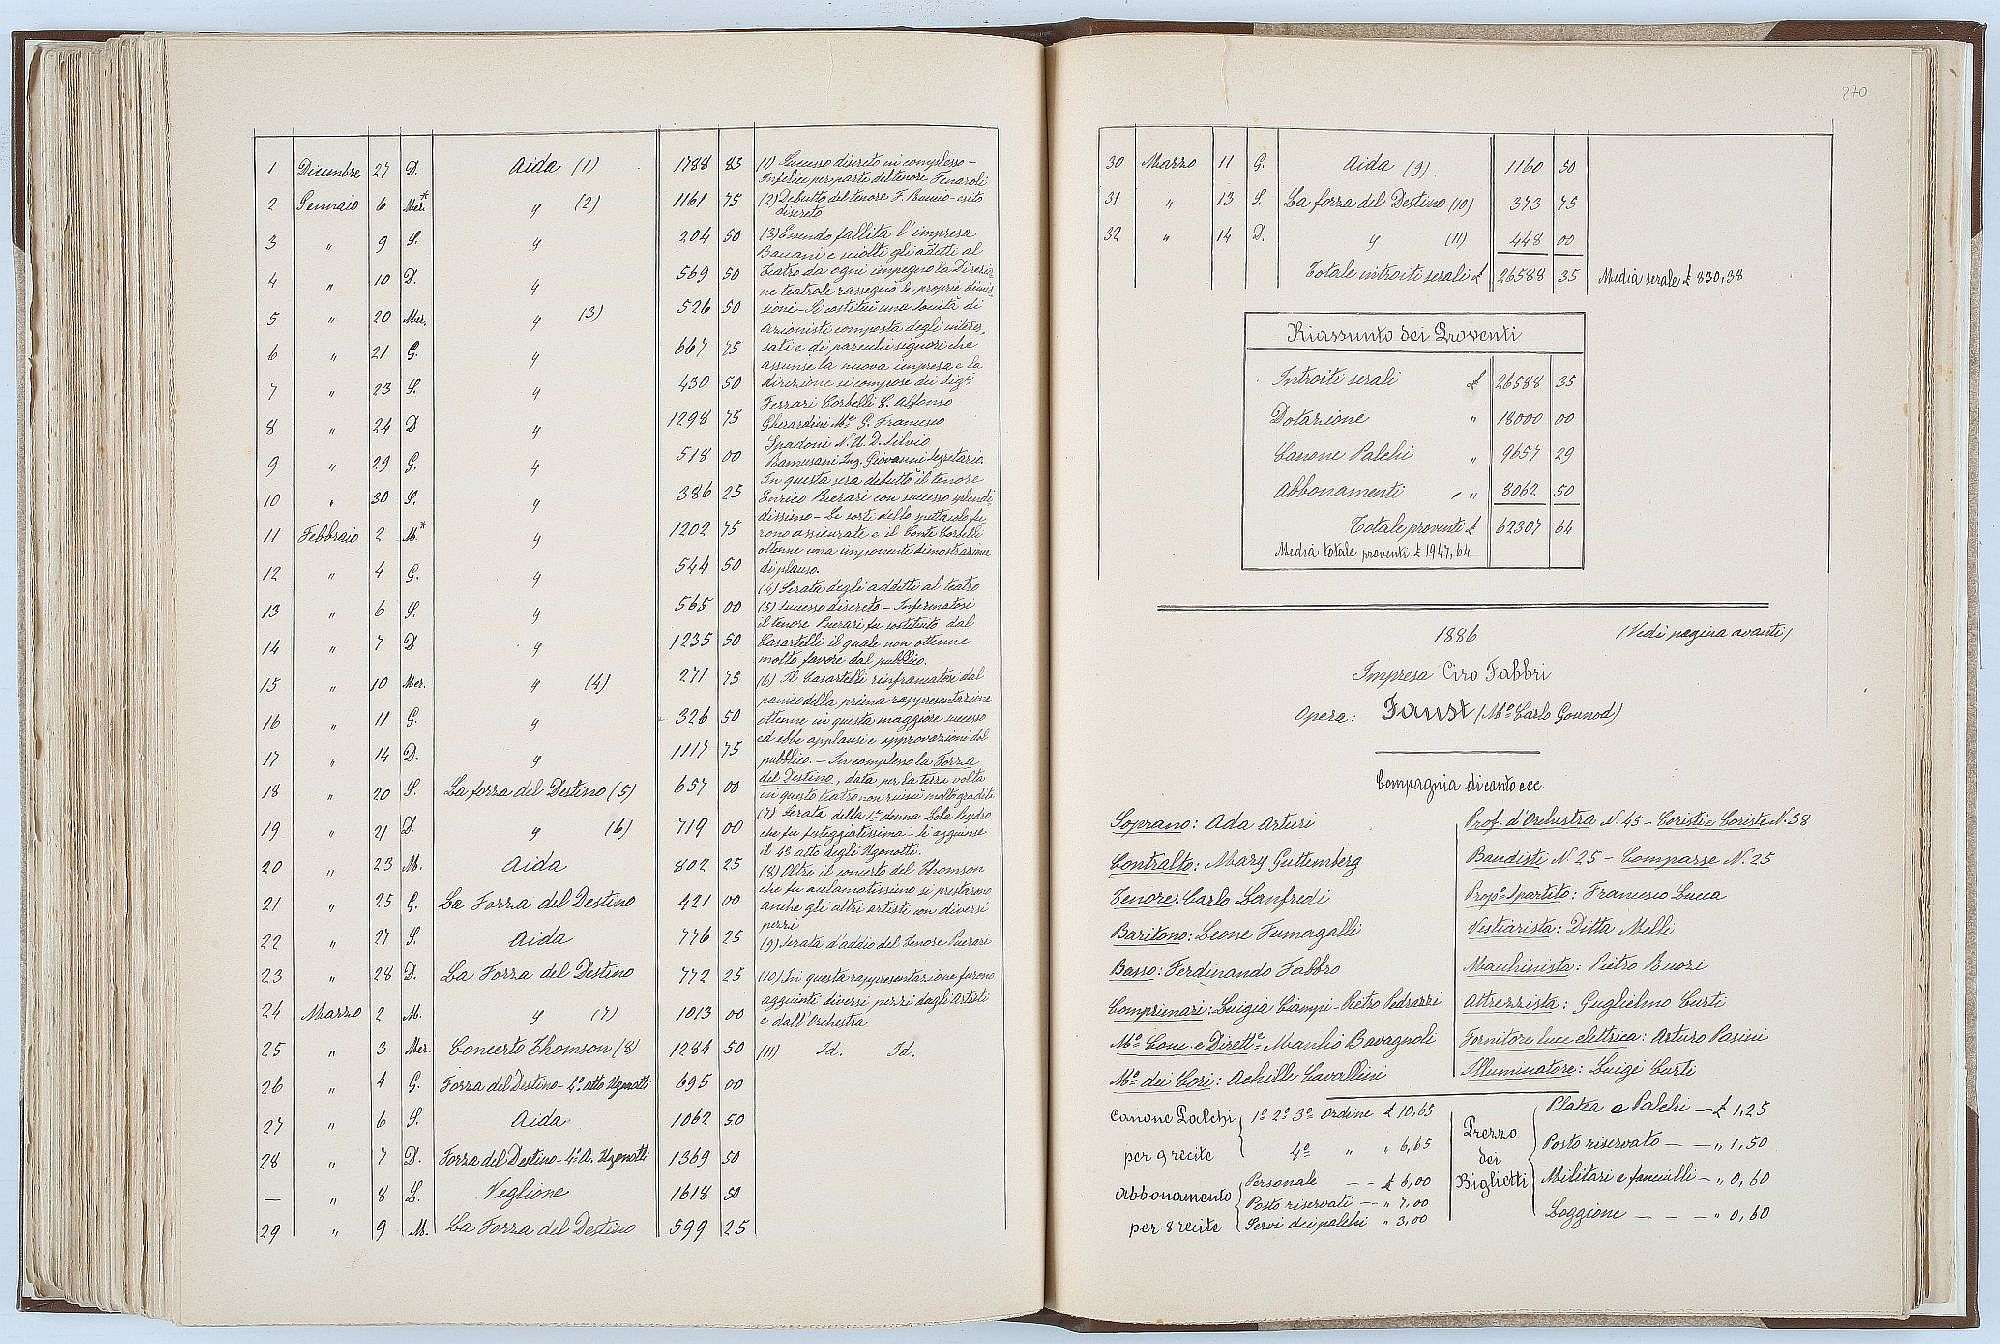 1 Dicembre 27 D. Aida (1) 1788 83
2 Gennaio 6 Mer.* " (2) 1161 75
3 " 9 S. " 204 50
4 " 10 D. " 569 50
5 " 20 Mer. " (3) 526 50
6 " 21 G. " 667 75
7 " 23 S. " 430 50
8 " 24 D " 1298 75
9 " 29 G. " 518 00
10 " 30 S. " 386 25
11 Febbraio 2 M* " 1202 75
12 " 4 G. " 544 50
13 " 6 S. " 565 00
14 " 7 D " 1235 50
15 " 10 Mer. " (4) 271 75
16 " 11 G. " 326 50
17 " 14 D. " 1117 75
18 " 20 S. La forza del Destino (5) 657 00
19 " 21 D. " (6) 719 00
20 " 23 M. Aida 802 25
21 " 25 G. La Forza del Destino 421 00
22 " 27 S. Aida 776 25
23 " 28 D. La Forza del Destino 772 25
24 Marzo 2 M. " (7) 1013 00
25 " 3 Mer Concerto Thomson (8) 1284 50
26 " 4 G. Forza del Destino - 4º atto Ugonotti 695 00
27 " 6 S. Aida 1062 50
28 " 7 D. Forza del Destino - 4º A. Ugonotti 1369 50
— " 8 L. Veglione 1618 50
29 " 9 M. La Forza del Destino 599 25
(1) Successo discreto in complesso -
Infelice per parte del tenore Tenaroli
(2) Debutto del tenore F. Buccio - esito
discreto
(3) Essendo fallita l'impresa
Bavani e sciolti gli addetti al
Teatro da ogni impegno la Direzio
ne teatrale rassegnò le proprie dimis
sioni - Si costituì una Società di
azionisti composta degli interes
sati e di parecchi signori che
assunse la nuova impresa e la
direzione si compose dei sigri
Ferrari Corbelli C. Alfonso
Gherardini Mse G. Francesco
Spadoni N. U. D. Silvio
Ramusani Ing. Giovanni Segretario.
In questa sera debuttò il tenore
Enrico Puerari con successo splendi
dissimo - Le sorti dello spettacolo fu
rono assicurate e il Conte Corbelli
ottenne una imponente dimostrazione
di plauso.
(4) Serata degli addetti al teatro
(5) Successo discreto - Infermatosi
il tenore Puerari fu sostituito dal
Casartelli il quale non ottenne
molto favore dal pubblico.
(6) Il Casartelli rinfrancatosi dal
panico della prima rappresentazione
ottenne in questa maggiore successo
ed ebbe applausi e approvazioni dal
pubblico. - In complesso la Forza
del Destino, data per la terza volta
in questo teatro non riuscì molto gradita
(7) Serata della 1ª donna Lola Peydro
che fu festeggiatissima - si aggiunse
il 4º atto degli Ugonotti.
(8) Oltre il concerto del Thomson
che fu acclamatissimo si prestarono
anche gli altri artisti con diversi
pezzi
(9) Serata d'addio del Tenore Puerari
(10) In questa rappresentazione furono
aggiunti diversi pezzi dagli Artisti
e dall'Orchestra
(11) Id. Id.
270
30 Marzo 11 G. Aida (9) 1160 50
31 " 13 S. La forza del Destino (10) 373 75
32 " 14 D. " (11) 448 00
Totale introiti serali £ 26588 35 Media serale £ 830,38
Riassunto dei Proventi
Introiti serali £ 26588 35
Dotazione " 18000 00
Canone Palchi " 9657 29
Abbonamenti " 8062 50
Totale proventi £ 62307 64
Media totale proventi £ 1947,64
1886 (Vedi pagina avanti)
Impresa Ciro Fabbri
Opera: Faust (Mº Carlo Gounod)
Compagnia di canto ecc
Soprano: Ada Arturi
Contralto: Mary Guttemberg
Tenore: Carlo Lanfredi
Baritono: Leone Fumagalli
Basso: Ferdinando Fabbro
Comprimari: Luigia Ciampi - Pietro Pedrozzi
Mº Conc. e Dirett.e Manlio Bavagnoli
Mº dei Cori: Achille Cavallini
Prof. d'Orchestra N. 45 - Coristi e Coriste N. 38
Bandisti N. 25 - Comparse N. 25
Prop.º Spartito: Francesco Lucca
Vestiarista: Ditta Melli
Macchinista: Pietro Buozi
Attrezzista: Guglielmo Curti
Fornitore luce elettrica: Arturo Pasini
Illuminatore: Luigi Curti
Canone Palchi per 9 recite
1º 2º 3º Ordine £ 10,65
4º " " 6,65
Abbonamento per 8 recite
Personale — £ 6,00
Posto riservati — " 7,00
Servi dei palchi " 3,00
Prezzo dei Biglietti
Platea e Palchi — £ 1,25
Posto riservato — " 1,50
Militari e fanciulli — " 0,60
Loggione — " 0,60